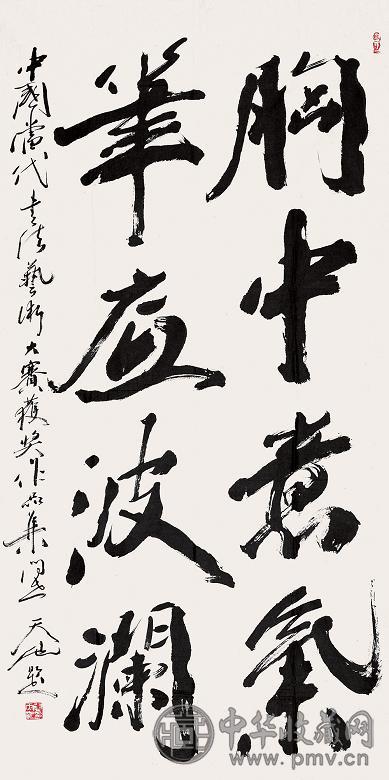 胸中意氣
筆底波瀾
中國當代书法藝術大賽獲奖作品集问世 天池题
中华收藏网
pmv.cn